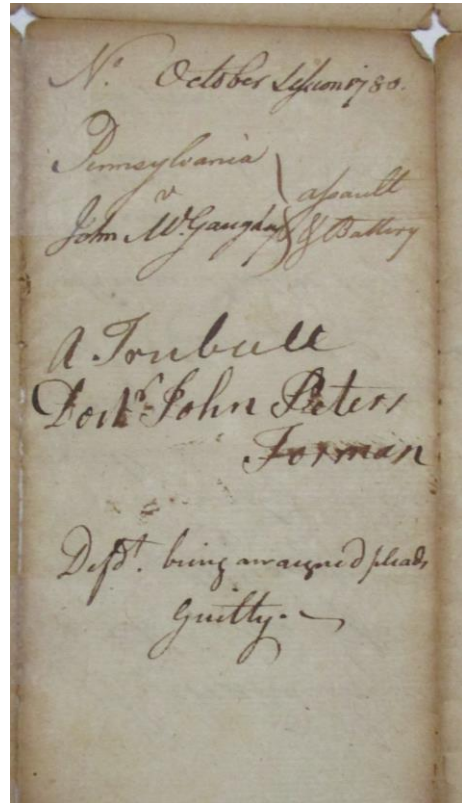 No. October Session 1780.
Pennsylvania
v
John McGaughy
assault
& Battery
A Trubull
Doctr. John Peters
Forman
Defdt. being arraigned pleads
Guilty.